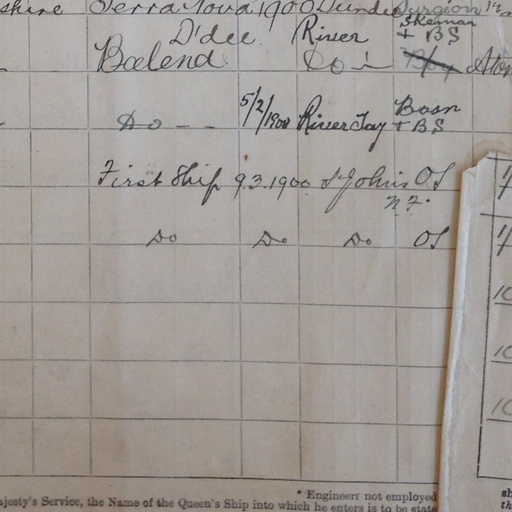 shire Terra Nova 1900 Dundee Surgeon
D'dee River Skeeman + BS
Balend Do
Do 5/2/1900 River Tay Bosn + BS
First Ship 9.3.1900 St Johns OS
N.F.
Do Do Do OS
10
10
10
* Engineers not employed
ajesty's Service, the Name of the Queen's Ship into which he enters is to be state